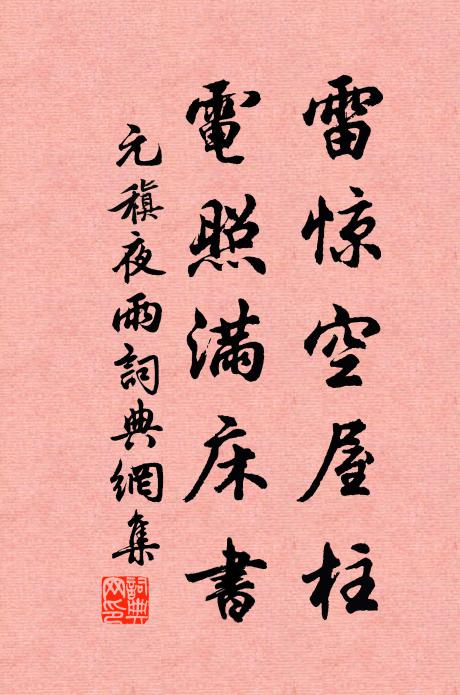 雷惊空屋柱
電照滿床書
元稹夜雨詞典網集
詞典网印